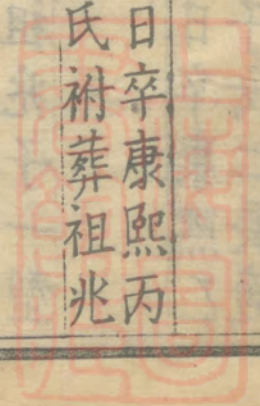 日卒康熙丙
氏祔葬祖兆